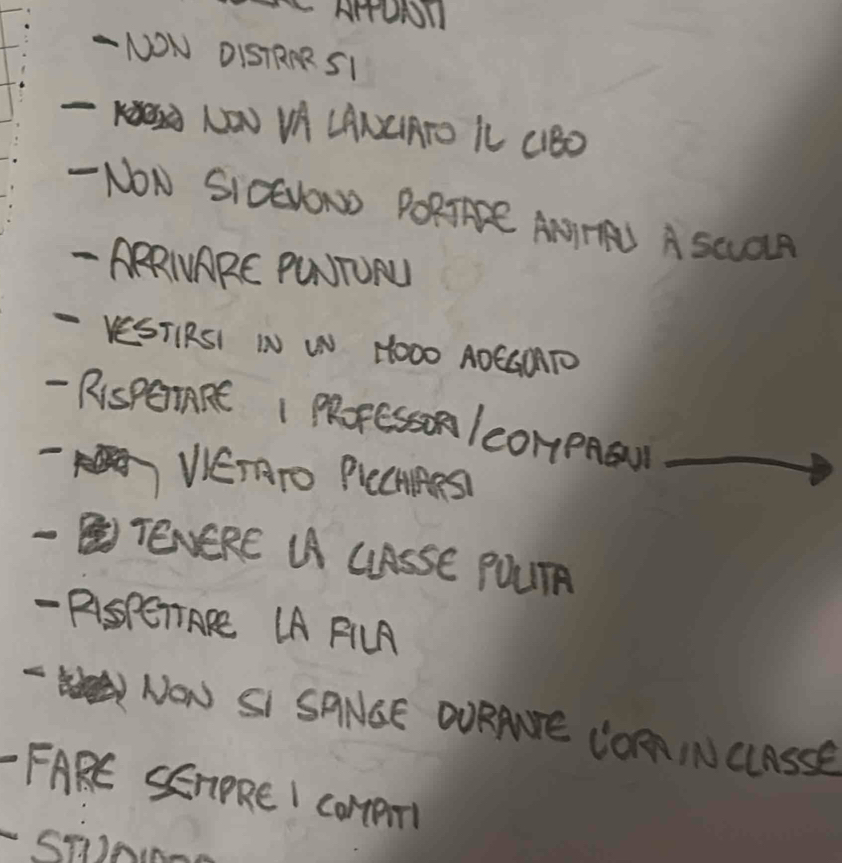 APPUNTI
- NON DISTRARSI
- NON VA LANCIATO IL CIBO
- NON SI DEVONO PORTARE ANIMALI A SCUOLA
- ARRIVARE PUNTUALI
- VESTIRSI IN UN MODO ADEGUATO
- RISPETTARE I PROFESSORI/COMPAGNI →
- VIETATO PICCHIARSI
- TENERE LA CLASSE PULITA
- RISPETTARE LA FILA
- NON SI SPINGE DURANTE L'ORA IN CLASSE
- FARE SEMPRE I COMPITI